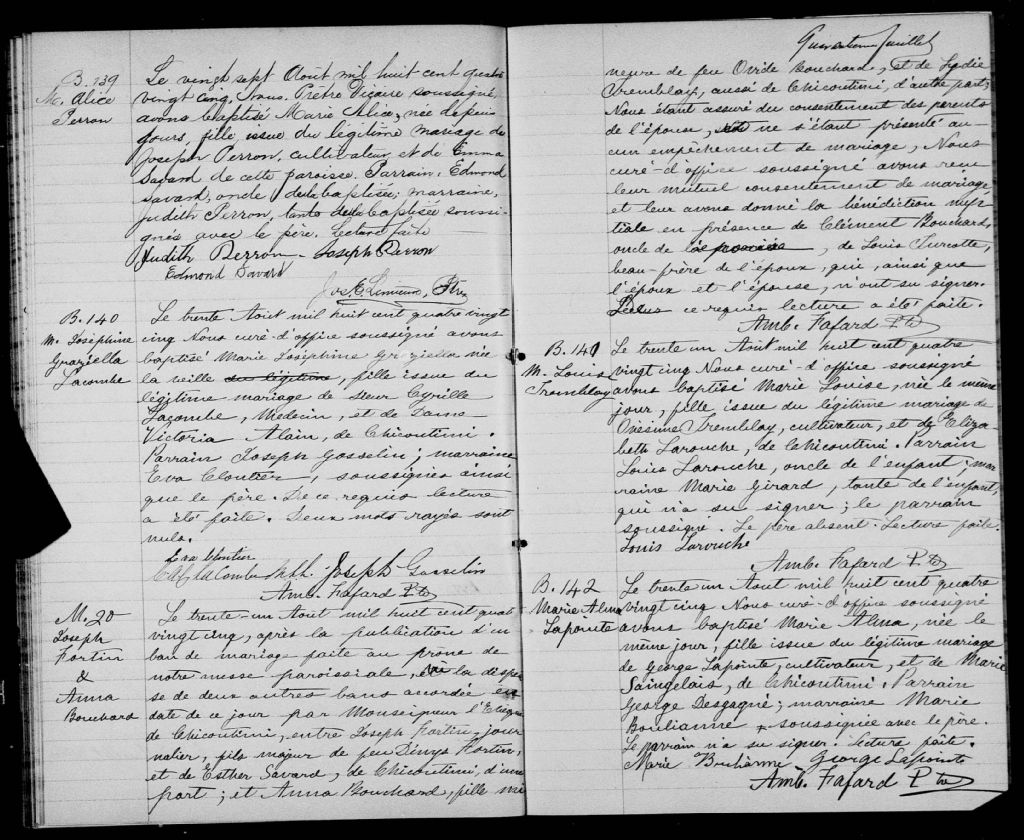 B. 139
M. Alice
Perron
Le vingt sept Août mil huit cent quatre
vingt cinq, Nous Prêtre Vicaire soussigné,
avons baptisé Marie Alice, née depuis
jours, fille issue du légitime mariage de
Joseph Perron, cultivateur, et de Emma
Savard de cette paroisse. Parrain, Edmond
Savard, oncle de la baptisée; marraine,
Judith Perron, tante de la baptisée soussi-
gnés avec le père. Lecture faite
Judith Perron - Joseph Perron
Edmond Savard
Jos. E. Lemieux, Ptre
B. 140
M. Joséphine
Graziella
Lacombe
Le trente Août mil huit cent quatre vingt
cinq Nous curé-d'office soussigné avons
baptisé Marie Joséphine Graziella née
la veille du légitime, fille issue du
légitime mariage de Sieur Cyrille
Lacombe, Médecin, et de Dame
Victoria Alain, de Chicoutimi.
Parrain Joseph Gosselin; marraine
Eva Cloutier, soussignés ainsi
que le père. De ce requis lecture
a été faite. Deux mots rayés sont
nuls.
Eva Cloutier
LaCombe Joseph Gosselin
Amb. Fafard Ptre
M. 20
Joseph
Fortin
&
Anna
Bouchard
Le trente-un Août mil huit cent quat
vingt cinq, après la publication d'un
ban de mariage faite au prône de
notre messe paroissiale, vu la dispen
se de deux autres bans accordée en
date de ce jour par Monseigneur l'Evêque
de Chicoutimi, entre Joseph Fortin, jour
nalier, fils majeur de feu Dinys Fortin,
et de Esther Savard, de Chicoutimi, d'une
part; et Anna Bouchard, fille mi
Quarantième feuillet
neure de feu Ovide Bouchard, et de Lydie
Tremblay, aussi de Chicoutimi, d'autre part;
Nous étant assuré du consentement des parents
de l'épouse, ne s'étant présenté au-
cun empêchement de mariage, Nous
curé-d'office soussigné avons reçu
leur mutuel consentement de mariage
et leur avons donné la bénédiction nup
tiale en présence de Clément Bouchard,
oncle de, de Louis Turcotte,
beau-frère de l'époux, qui, ainsi que
l'époux et l'épouse, n'ont su signer.
De ce requis lecture a été faite.
Amb. Fafard Ptre
B. 141
M. Louise
Tremblay
Le trente un Août mil huit cent quatre
vingt cinq Nous curé-d'office soussigné
avons baptisé Marie Louise, née le même
jour, fille issue du légitime mariage de
Onésime Tremblay, cultivateur, et de Eliza-
beth Larouche, de Chicoutimi. Parrain
Louis Larouche, oncle de l'enfant; mar
raine Marie Girard, tante de l'enfant,
qui n'a su signer; le parrain
soussigné. Le père absent. Lecture faite.
Louis Larouche
Amb. Fafard Ptre
B. 142
Marie Alma
Lapointe
Le trente un Août mil huit cent quatre
vingt cinq Nous curé-d'office soussigné
avons baptisé Marie Alma, née le
même jour, fille issue du légitime mariage
de George Lapointe, cultivateur, et de Marie
Saingelais, de Chicoutimi. Parrain
George Desgagné; marraine Marie
Boulianne soussignée avec le père.
Le parrain n'a su signer. Lecture faite.
Marie Boulianne George Lapointe
Amb. Fafard Ptre